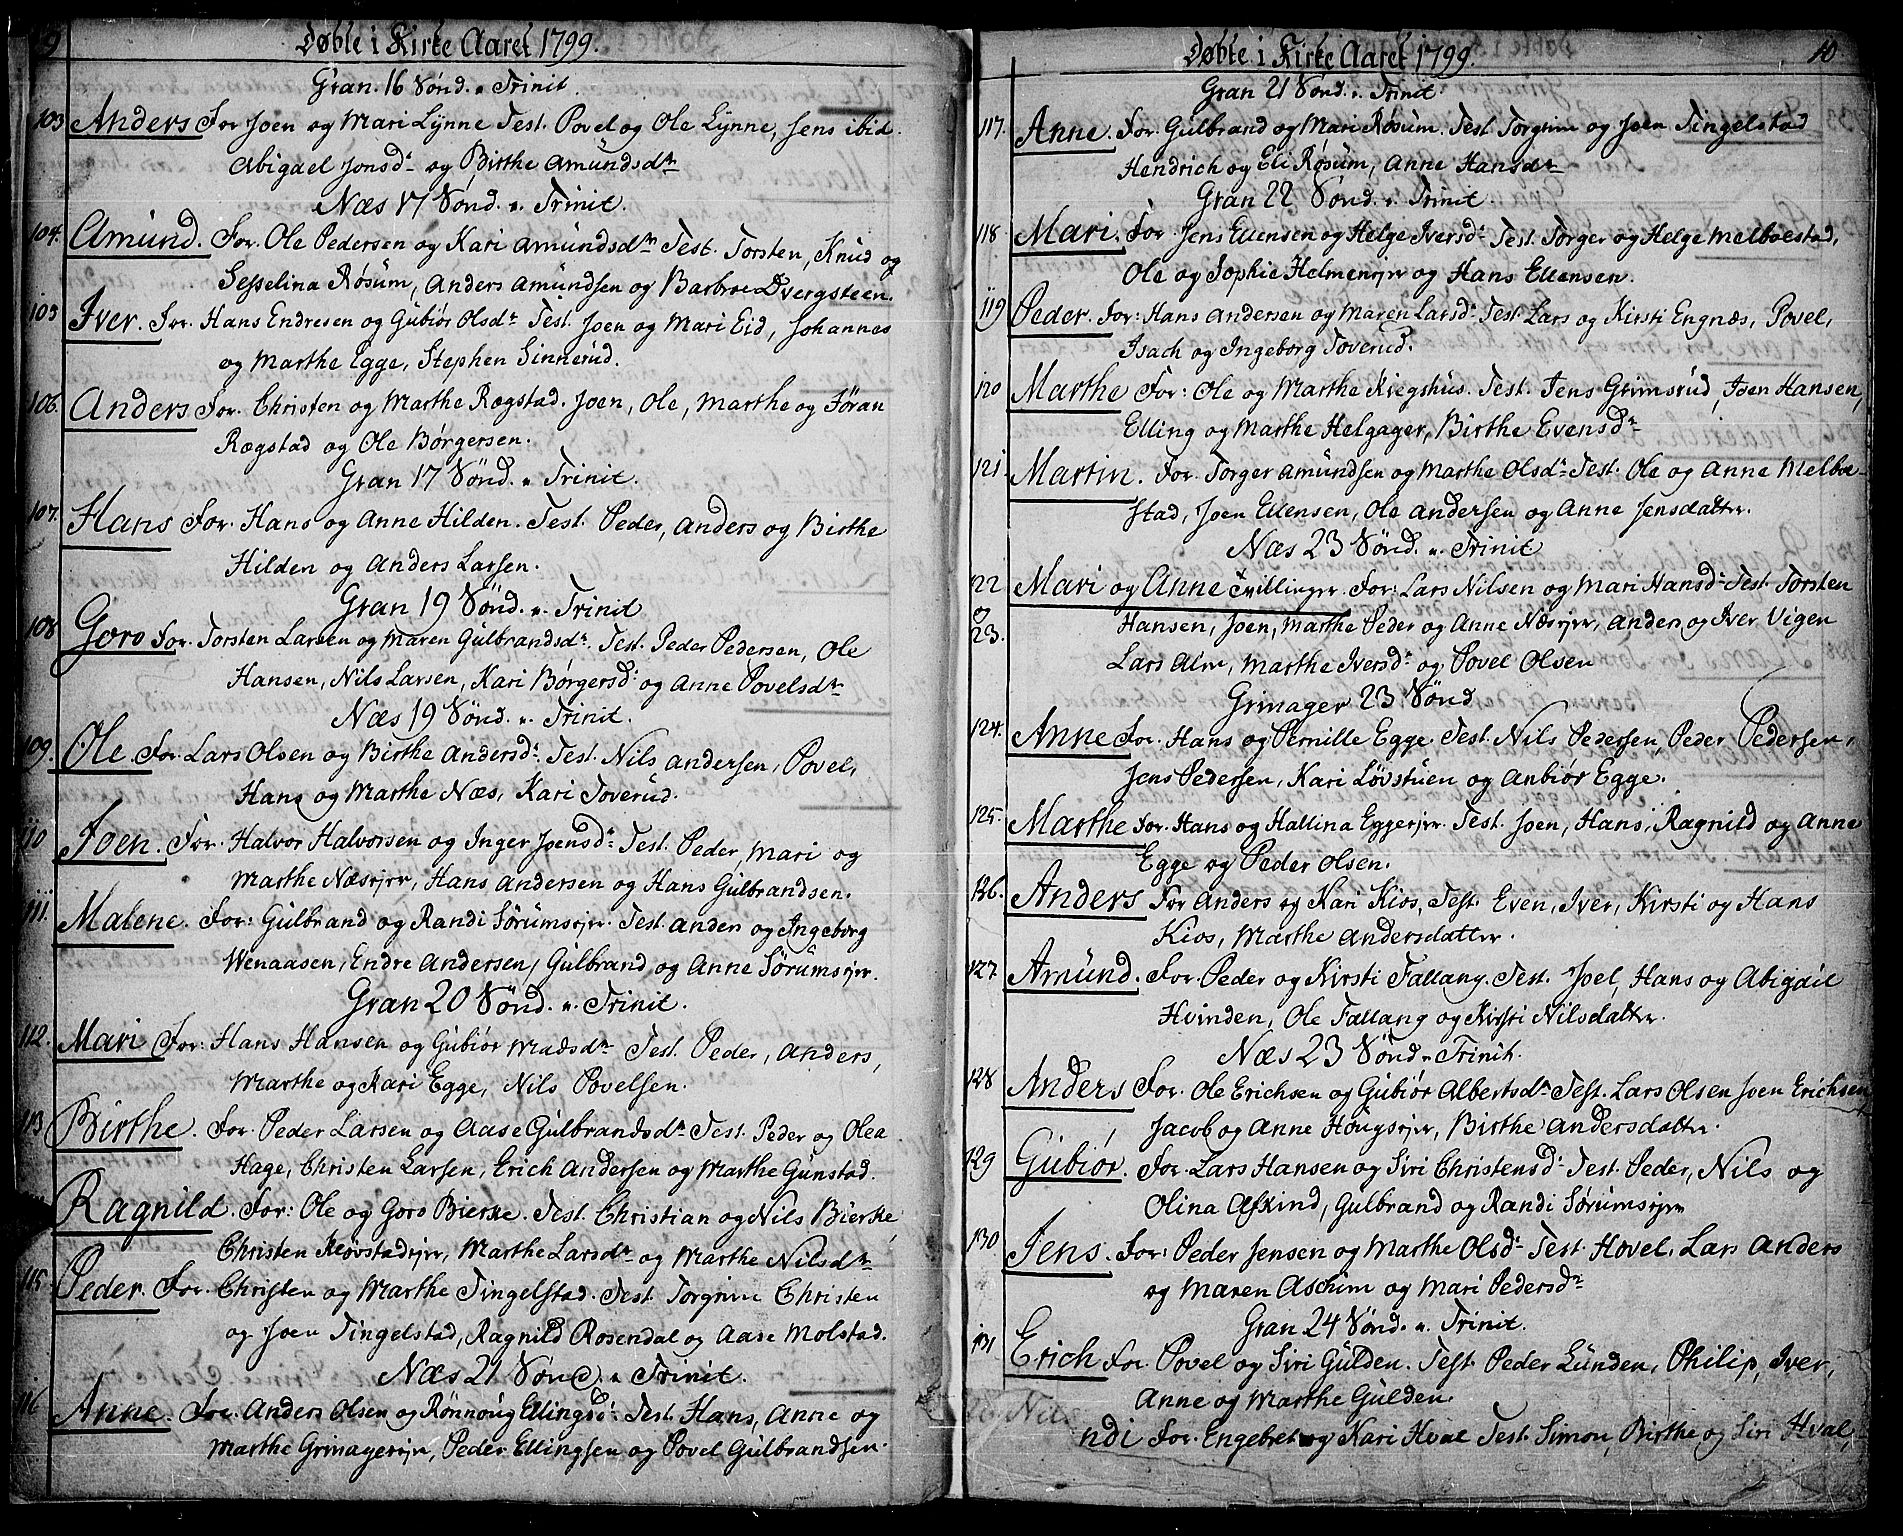 9
Døbte i Kirke Aaret 1799.
Gran. 16 Sønd. " Trinit.
103 Anders For Joen og Mari Lÿnne Test. Povel og Ole Lÿnne, Jens ibid.
Abigael Jonsd. og Birthe Amundsdtr
Næs 17 Sønd. " Trinit.
104. Amund. For. Ole Pedersen og Kari Amundsdtr Test. Torsten, Knud og
Sesselina Røsum, Anders Amundsen og Barbroe Dvergsteen.
105 Iver. For. Hans Endresen og Gubiør Olsdr Test. Joen og Mari Eid, Johannes
og Marthe Egge, Stephen Sinnerud.
106. Anders For. Christen og Marthe Rægstad. Joen, Ole, Marthe og Jøran
Rægstad og Ole Børgersen.
Gran 17 Sønd. " Trinit.
107. Hans For. Hans og Anne Hilden. Test. Peder, Anders og Birthe
Hilden og Anders Larsen.
Gran 19 Sønd. " Trinit
108 Goro For. Torsten Larsen og Maren Gulbrandsdr. Test. Peder Pedersen, Ole
Hansen, Nils Larsen, Kari Børgersd: og Anne Povelsdtr
Næs 19 Sønd. " Trinit.
109. Ole For Lars Olsen og Birthe Andersd: Test. Nils Andersen, Povel,
Hans og Marthe Næs, Kari Toverud.
110 Joen. For. Halvor Halvorsen og Inger Joensd: Test. Peder, Mari og
Marthe Næsejer, Hans Andersen og Hans Gulbrandsen.
111. Malene. For: Gulbrand og Randi Sørumsejer. Test. Anders og Ingeborg
Wenaasen, Endre Andersen, Gulbrand og Anne Sørumsejer.
Gran 20 Sønd. " Trinit.
112. Mari For: Hans Hansen og Gubiør Madsdtr Test. Peder, Anders,
Marthe og Kari Egge, Nils Povelsen.
113 Birthe. For Peder Larsen og Aase Gulbrandsdr Test. Peder og Olea
Hage, Christen Larsen, Erich Andersen og Marthe Gunstad.
Ragnild. For: Ole og Goro Bierke. Test. Christian og Nils Bierke,
Christen Kløvstadejer, Marthe Larsdr og Marthe Nilsdtr
115 Peder. For. Christen og Marthe Tingelstad. Test Torgrim Christen
og Joen Tingelstad, Ragnild Rosendal og Aase Molstad.
Næs 21 Sønd. " Trinit.
116 Anne. For. Anders Olsen og Rønnoug Ellingsd: Test. Hans, Anne og
Marthe Grinagerejer, Peder Ellingsen og Povel Gulbrandsen.
10
Døbte i Kirke Aaret 1799.
Gran 21 Sønd. " Trinit
117. Anne. For. Gulbrand og Mari Røsum. Test. Torgrim og Joen Tingelstad
Hendrich og Eli Røsum, Anne Hansdtr
Gran 22 Sønd. " Trinit.
118 Mari. For Jens Ellensen og Helge Iversd: Test. Torger og Helge Melboestad,
Ole og Sophie Helmenejer og Hans Ellensen.
119 Peder. For: Hans Andersen og Maren Larsd: Test. Lars og Kirsti Engnæs, Povel,
Isach og Ingeborg Toverud.
120 Marthe For: Ole og Marthe Kiegshus. Test. Jens Grimsrud, Joen Hansen,
Elling og Marthe Helgager, Birthe Evensdr
121. Martin. For. Torger Amundsen og Marthe Olsdr Test. Ole og Anne Melboe-
stad, Joen Ellensen, Ole Andersen og Anne Jensdatter.
Næs 23 Sønd. " Trinit
122 Mari og Anne Tvillinger For: Lars Nilsen og Mari Hansdr Test. Torsten
og 23. Hansen, Joen, Marthe Peder og Anne Næsejer, Anders og Iver Vigen
Lars Alm, Marthe Iversd: og Povel Olsen
Grinager 23 Sønd
124. Anne For. Hans og Pernille Egge. Test. Nils Pedersen, Peder Pedersen,
Jens Pedersen, Kari Løvstuen og Anbiør Egge.
125. Marthe For. Hans og Hallina Eggeejer. Test. Joen, Hans, Ragnild og Anne
Egge og Peder Olsen.
126. Anders For Anders og Kari Kios, Test. Even, Iver, Kirsti og Hans
Kios, Marthe Andersdatter.
127. Amund. For Peder og Kirsti Fallang. Test. Joel, Hans og Abigail
Hvinden, Ole Fallang og Kirsti Nilsdatter.
Næs 23 Sønd " Trinit.
128 Anders For. Ole Erichsen og Gubiør Albertsdr Test. Lars Olsen Joen Erichsen,
Jacob og Anne Hougsejer, Birthe Andersdatter.
129 Gubiør. For. Lars Hansen og Siri Christensd: Test. Peder, Nils og
Olina Askind, Gulbrand og Randi Sørumsejer
130 Jens. For: Peder Jensen og Marthe Olsd: Test. Hovel, Lars Anders
og Maren Aschim og Mari Pedersdr
Gran 24 Sønd. " Trinit.
131 Erich For Povel og Siri Gulden. Test. Peder Lunden, Philip, Iver,
Anne og Marthe Gulden.
ndi For. Engebret og Kari Hval Test. Simon, Birthe og Siri Hval,